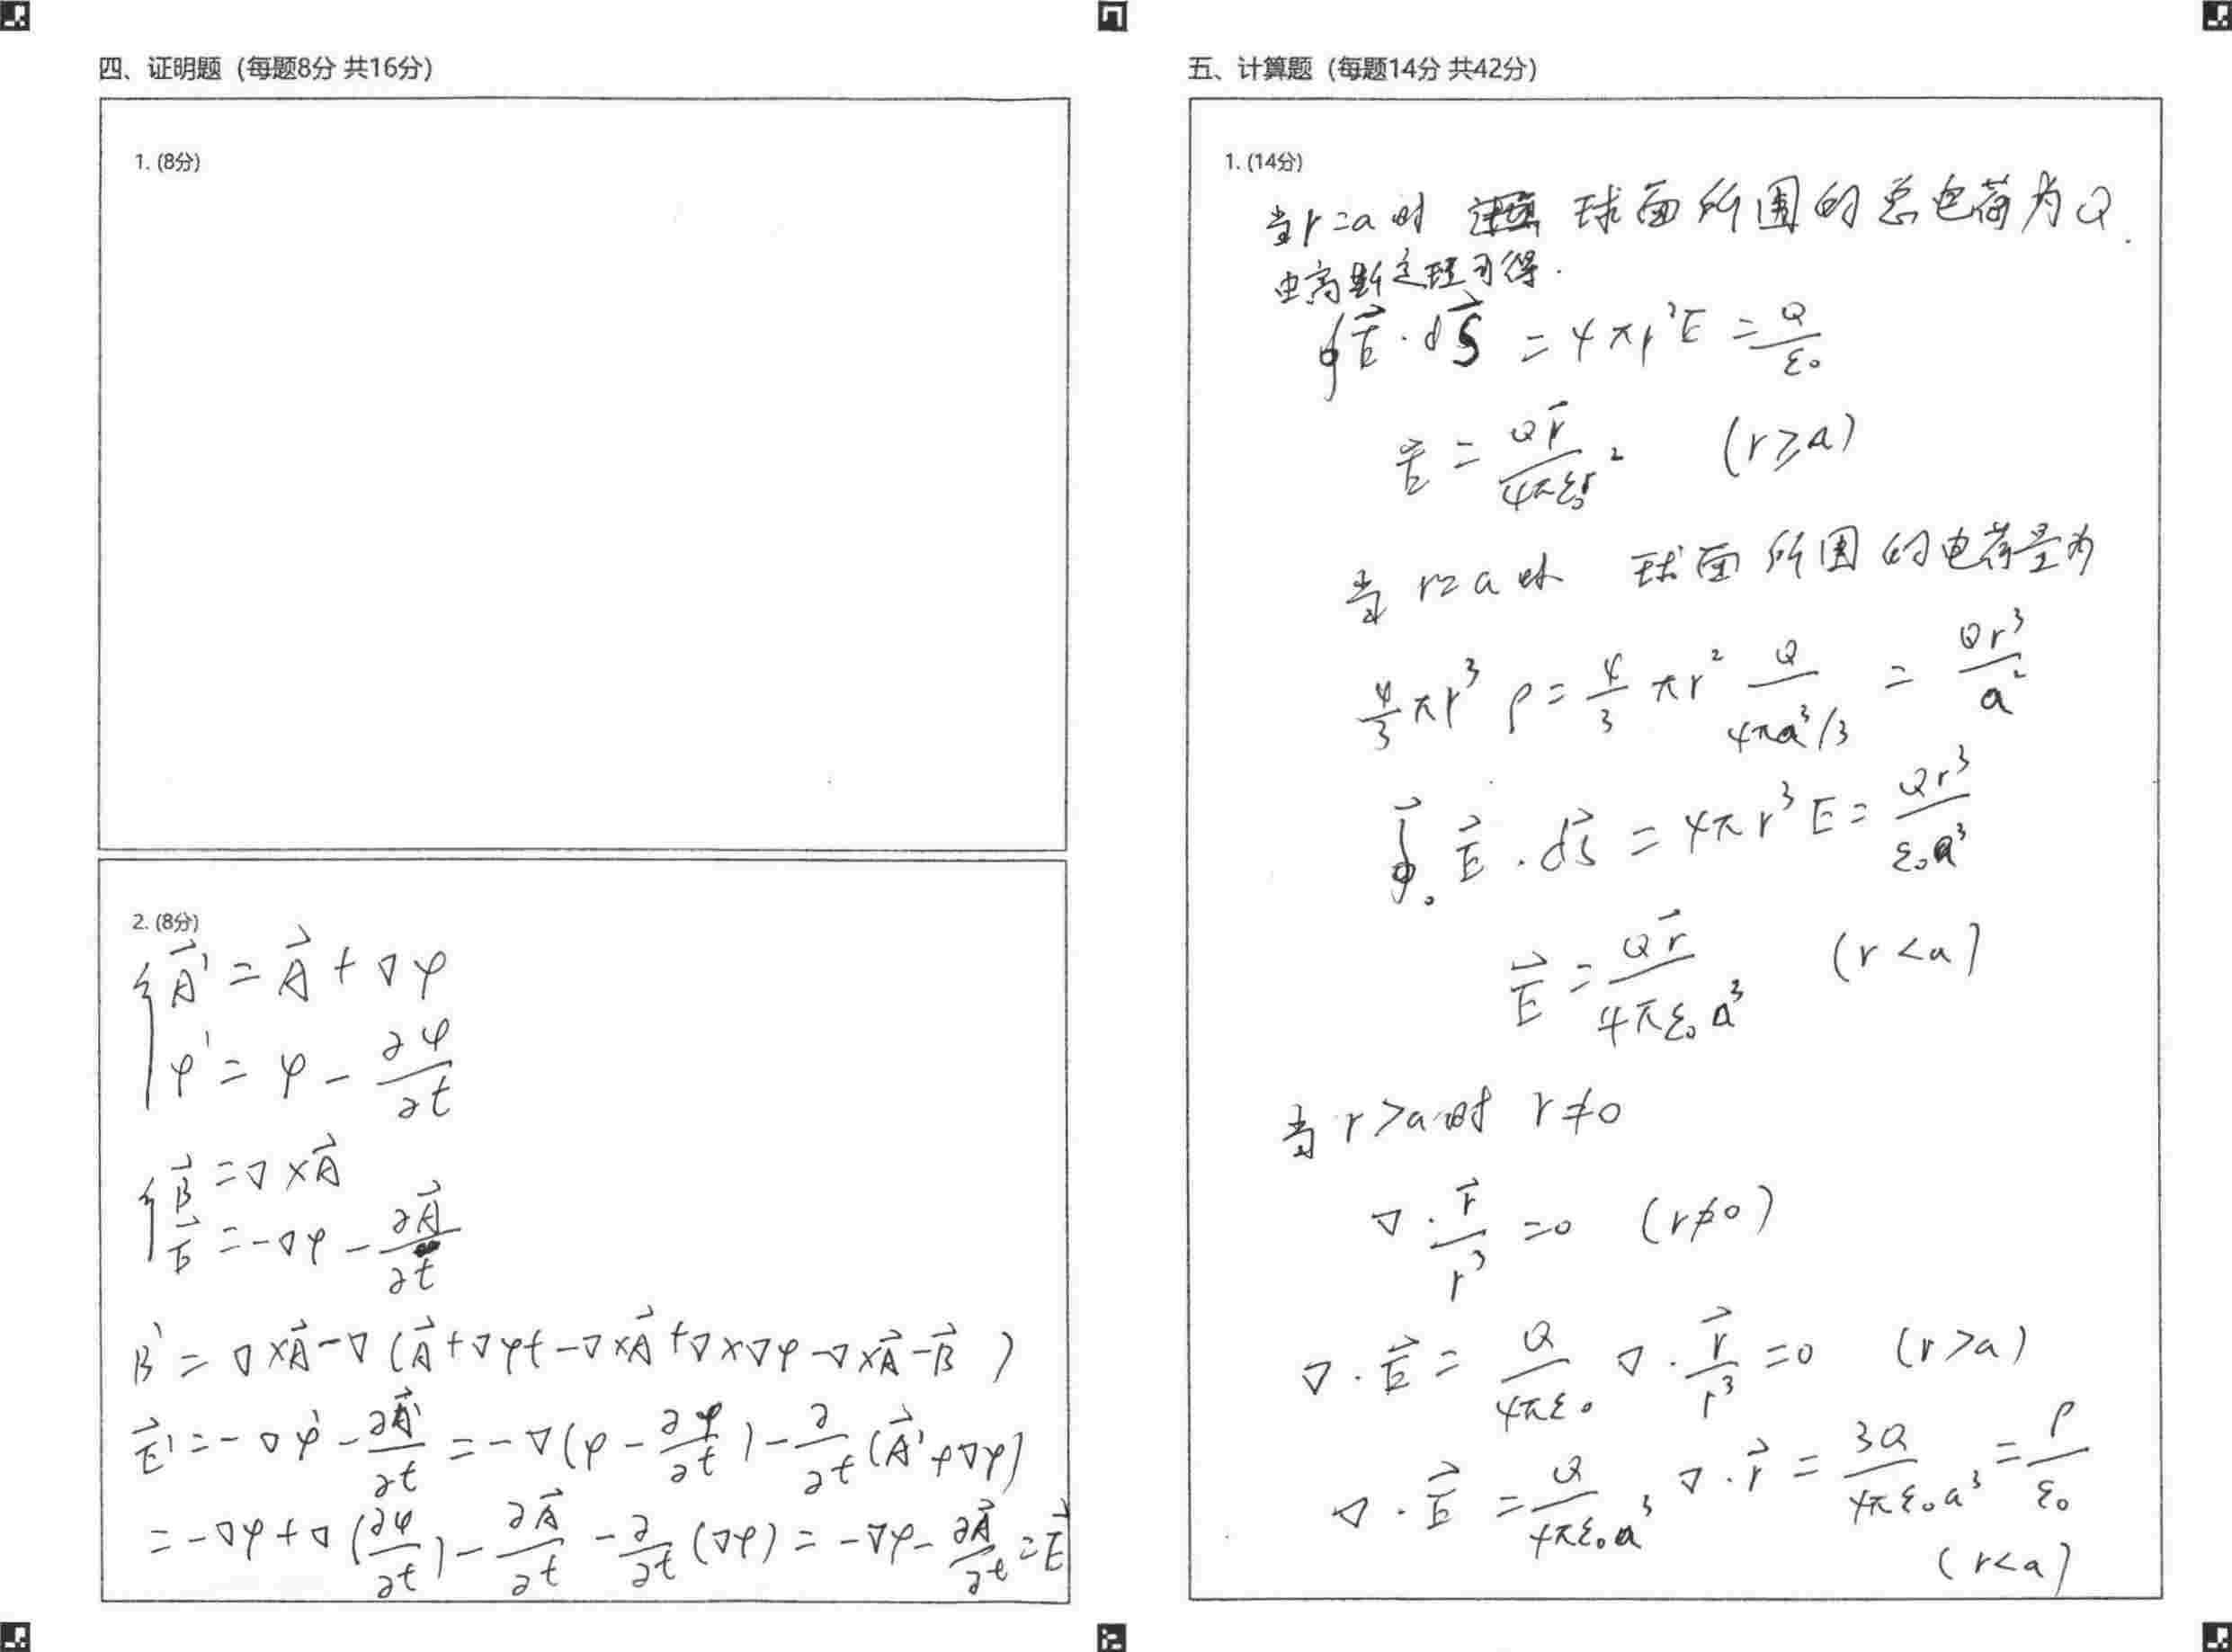 四、证明题（每题8分 共16分）
1. (8分)
2. (8分)
{ A⃗' = A⃗ + ∇φ
φ' = φ - ∂φ/∂t
{ B⃗ = ∇×A⃗
E⃗ = -∇φ - ∂A⃗/∂t
B' = ∇×A⃗ - ∇(A⃗+∇φt-∇×A⃗+∇×∇φ-∇×A⃗-B⃗ )
E⃗' = -∇φ' - ∂A⃗'/∂t = -∇(φ - ∂φ/∂t) - ∂/∂t (A⃗'+∇φ)
= -∇φ + ∇(∂φ/∂t) - ∂A⃗/∂t - ∂/∂t (∇φ) = -∇φ - ∂A⃗/∂t = E⃗
五、计算题（每题14分 共42分）
1. (14分)
当r=a时 球面所围的总电荷为Q.
由高斯定理可得.
∮E⃗·dS⃗ = 4πr²E = Q/ε₀
E⃗ = Qr⃗/4πε₀r² (r≥a)
当 r=a时 球面所围的电荷量为
4/3 πr³ ρ = 4/3 πr² Q/(4πa³/3) = Qr³/a²
∮ E⃗·dS⃗ = 4πr³E = Qr³/ε₀a³
E⃗ = Qr⃗/4πε₀a³ (r<a)
当r>a时 r≠0
∇· r⃗/r³ =0 (r≠0)
∇·E⃗ = Q/4πε₀ ∇· r⃗/r³ =0 (r>a)
∇·E⃗ = Q/4πε₀a³ ∇·r⃗ = 3Q/4πε₀a³ = ρ/ε₀
(r<a)